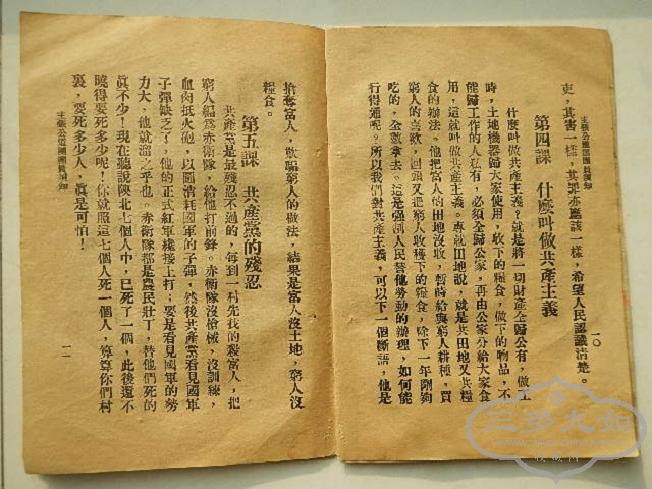 主張公道團團員須知
一〇
吏，其害一樣，其罪亦應該一樣，希望人民認識清楚。
第四課　什麼叫做共產主義
什麼叫做共產主義？就是將一切財產全歸公有，做工
時，土地機器歸大家使用，收下的糧食，做下的物品，不
能歸工作的人私有，必須全歸公家，再由公家分給大家食
用，這就叫做共產主義。專就田地說，就是共田地又共糧
食的辦法。他把富人的田地沒收，暫時給與窮人耕種，買
窮人的喜歡，回頭又把窮人收穫下的糧食，除下一年剛夠
吃的，全數拿去。這是强制人民替他勞動的辦理，如何能
行得通呢？所以我們對共產主義，可以下一個斷語，他是
搶奪富人，欺騙窮人的做法，結果是富人沒土地，窮人沒
糧食。
第五課　共產黨的殘忍
共產黨是最殘忍不過的，每到一村先我的殺富人，把
窮人編為赤衛隊，給他打前鋒。赤衛隊沒槍械，沒訓練，
血肉抵火砲，以圖消耗國軍的子彈，然後共產黨看見國軍
子彈缺乏了，他的正式紅軍纔接上打；要是看見國軍的勞
力大，他就溜之乎也。赤衛隊都是農民壯丁，替他們死的
眞不少！現在聽說陝北七個人中，已死了一個，此後還不
曉得要死多少呢！你就照這七個人死一個人，算算你們村
裏，要死多少人，眞是可怕！
主張公道團團員須知
一一
三多九如
收藏网